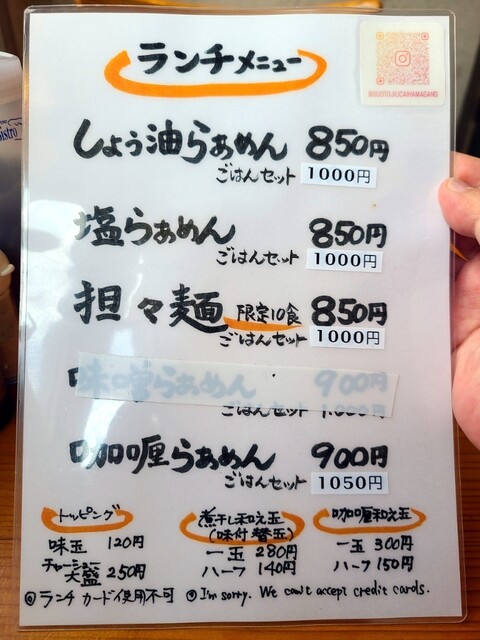 ランチメニュー
しょう油らぁめん 850円
ごはんセット 1000円
塩らぁめん 850円
ごはんセット 1000円
担々麺 限定10食 850円
ごはんセット 1000円
味噌らぁめん 900円
ごはんセット 1,000円
咖喱らぁめん 900円
ごはんセット 1050円
トッピング
味玉 120円
チャーシュー
大盛 250円
煮干し和え玉
(味付替玉)
一玉 280円
ハーフ 140円
咖喱和え玉
一玉 300円
ハーフ 150円
◎ランチ カード使用不可
◎I'm sorry. We can't accept credit cards.